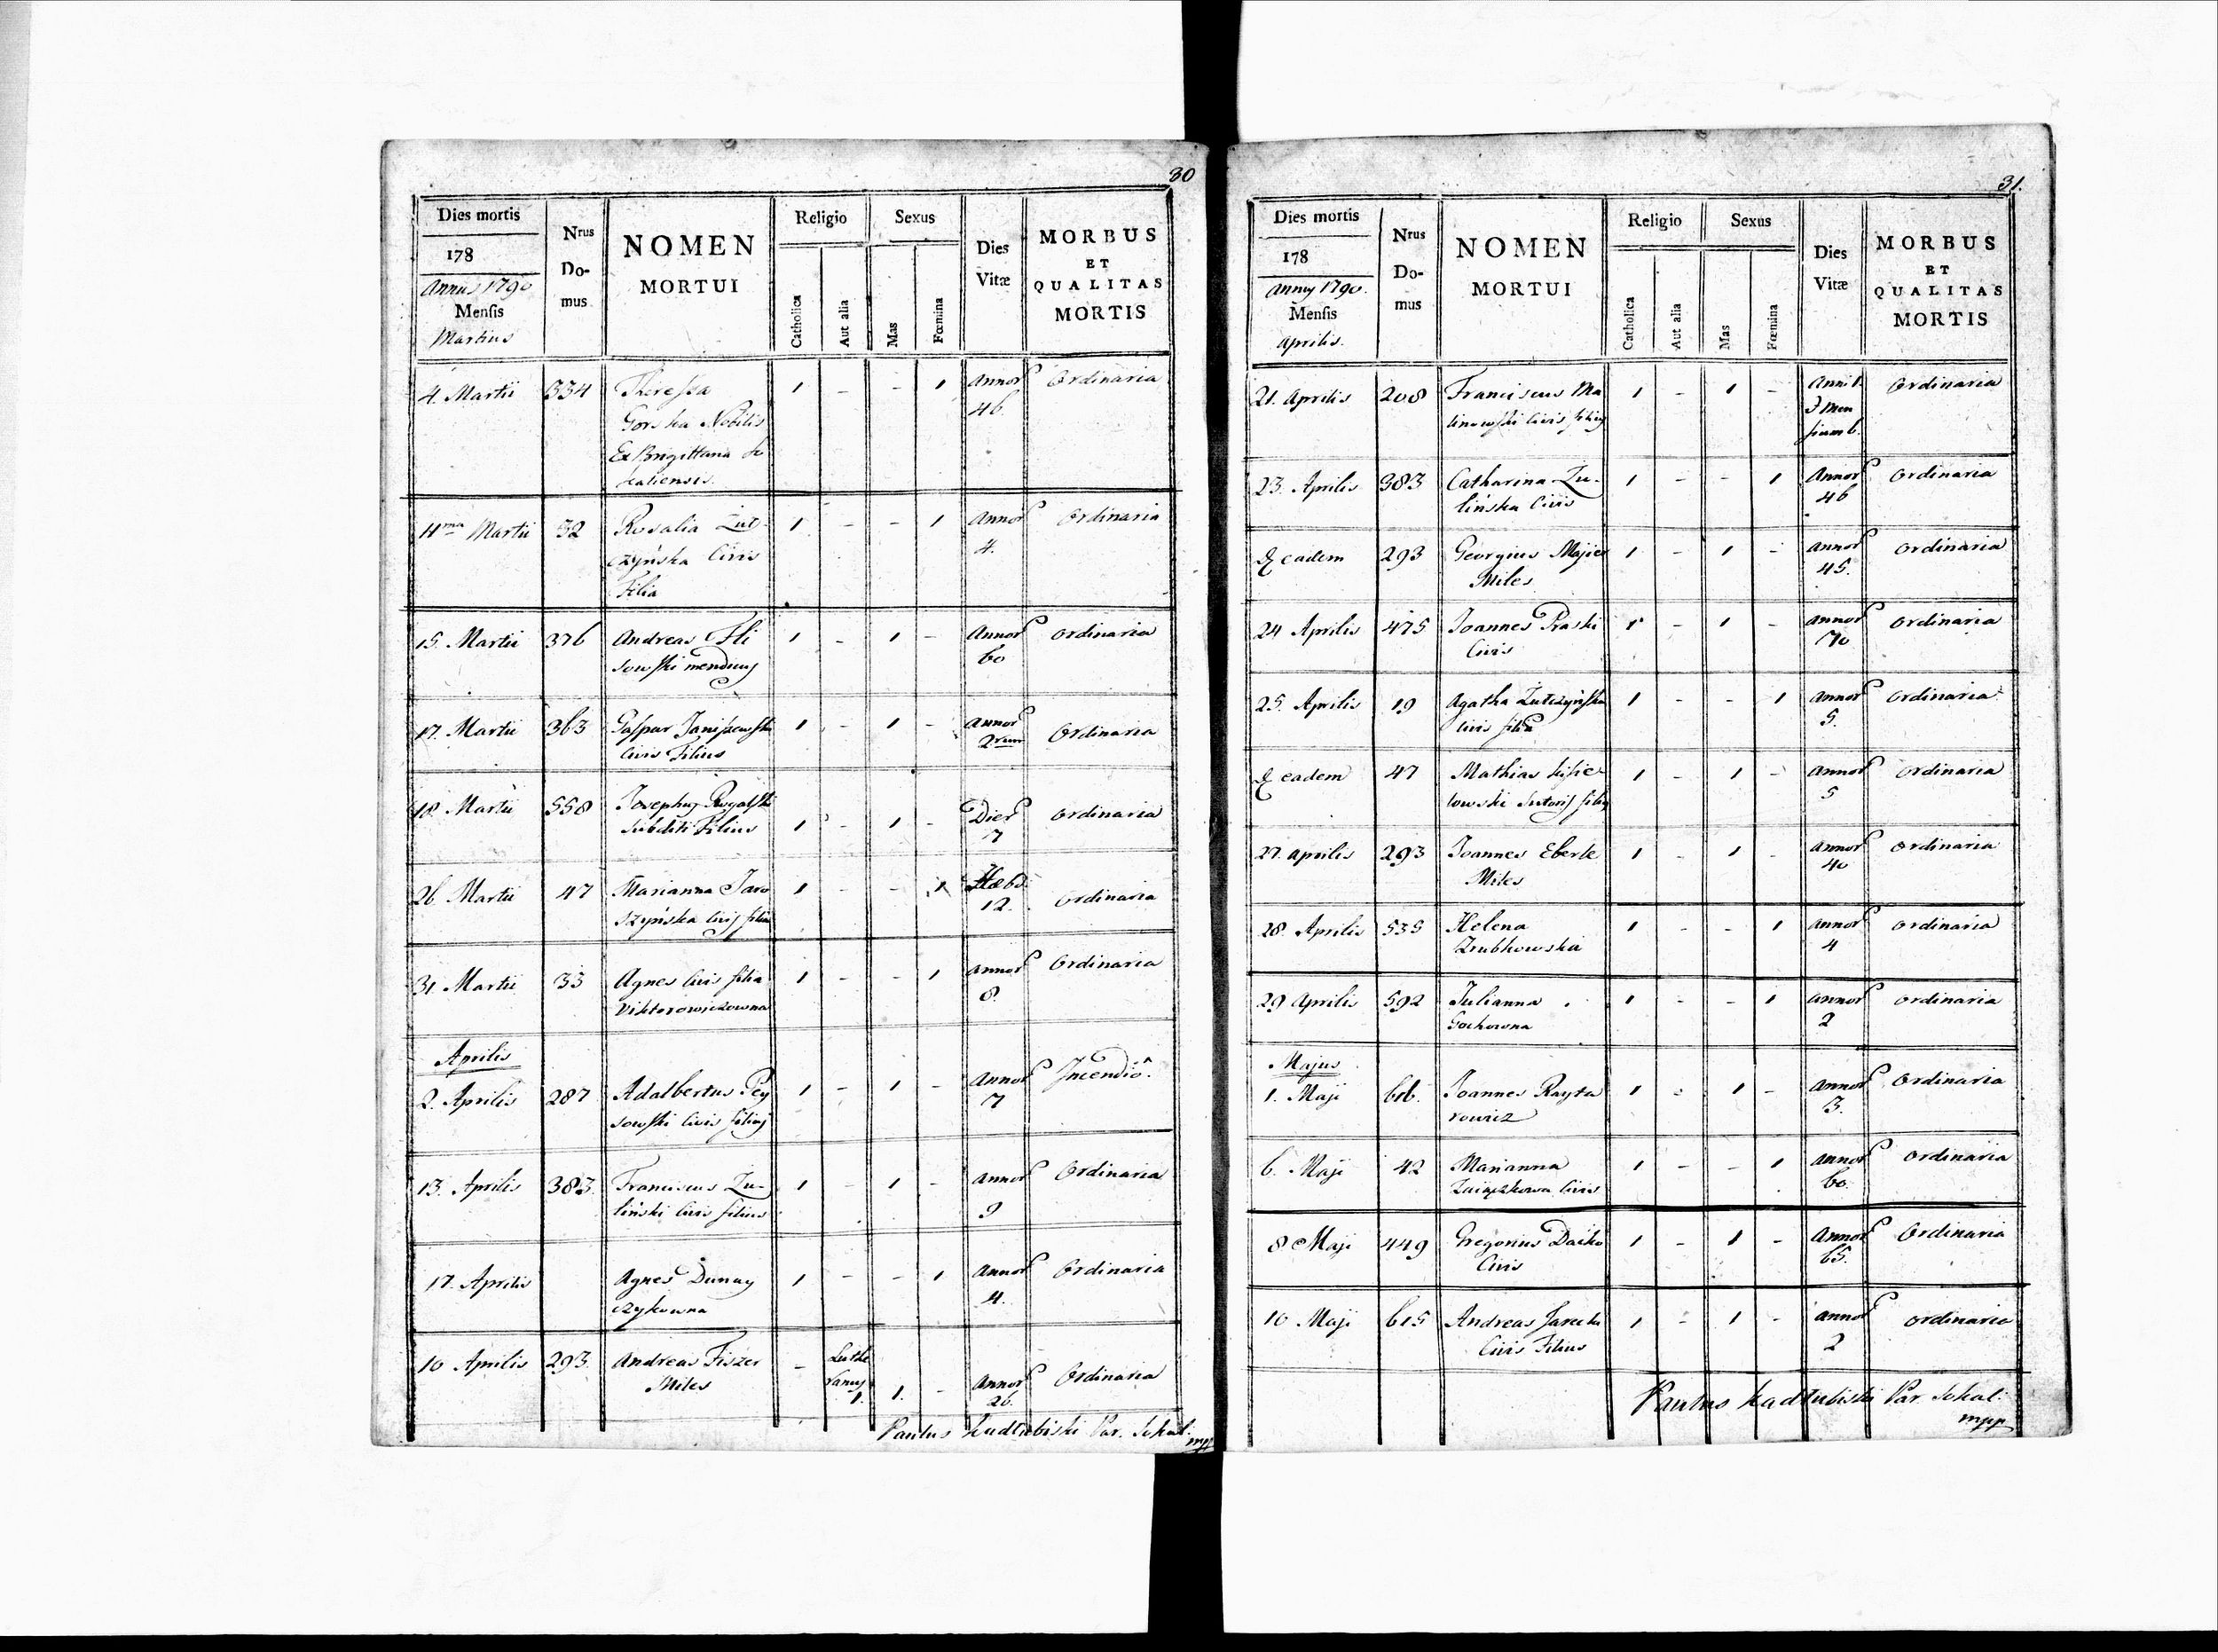 30
Dies mortis
178
Annus 1790
Mensis
Martius
Nrus
Do-
mus
NOMEN
MORTUI
Religio
Catholica
Aut alia
Sexus
Mas
Fœmina
Dies
Vitæ
MORBUS
ET
QUALITAS
MORTIS
4. Martii 334 Theressa 1 - - 1 Annor Ordinaria
Gorska Nobilis 46.
Ex Brigittana So
kaliensis.
11ma Martii 32 Rosalia Zut 1 - - 1 Annor Ordinaria
czyńska Civis 4.
Filia
15. Martii 376 Andreas Fli 1 - 1 - Annor Ordinaria
sowski mendicus 60
17. Martii 363 Gaspar Janiszewski 1 - 1 - Annor Ordinaria
Civis Filius 2rum
18. Martii 558 Josephus Rogalski
subditi Filius 1 - 1 - Dier Ordinaria
7
26. Martii 47 Marianna Jaro 1 - - 1 Hebd: Ordinaria
szyńska Civis filia 12.
31. Martii 33 Agnes Civis filia 1 - - 1 Annor Ordinaria
Viktorowiczowna 8.
Aprilis
2. Aprilis 287 Adalbertus Pey 1 - 1 - Annor Incendiô.
sowski Civis filius 7
13. Aprilis 383. Franciscus Zu- 1 - 1 - Annor Ordinaria
liński Civis filius 9
17. Aprilis Agnes Dunay 1 - - 1 Annor Ordinaria
czykowna 4.
10 Aprilis 293. Andreas Fiszer - Luthe
Miles ranus 1. 1. - Annor Ordinaria
26.
Paulus Kadłubiski Par. Sokal:
mpp
31.
Dies mortis
178
Annus 1790.
Mensis
Aprilis.
Nrus
Do-
mus
NOMEN
MORTUI
Religio
Catholica
Aut alia
Sexus
Mas
Fœmina
Dies
Vitæ
MORBUS
ET
QUALITAS
MORTIS
21. Aprilis 208 Franciscus Ma 1 - 1 - Anni 1. Ordinaria
linowski Civis filius Men
sium 6.
23. Aprilis 383 Catharina Zu- 1 - - 1 Annor Ordinaria
lińska Civis 46
eadem 293 Georgius Majier 1 - 1 - Annor Ordinaria
Miles 45.
24 Aprilis 475 Joannes Praski 1 - 1 - Annor Ordinaria
Civis 70
25. Aprilis 19 Agatha Zutczyńska 1 - - 1 Annor Ordinaria
Civis filia 5.
eadem 47 Mathias Kisie 1 - 1 - Annor Ordinaria
lowski Sutoris filius 5
27. Aprilis 293 Joannes Eberle 1 - 1 - Annor Ordinaria
Miles 40
28. Aprilis 535 Helena 1 - - 1 Annor Ordinaria
Zrubkowska 4
29 Aprilis 592 Julianna 1 - - 1 Annor Ordinaria
Gockowna 2
Majus
1. Maji 616. Joannes Rayta 1 - 1 - Annor Ordinaria
rowicz 3.
6. Maji 42 Marianna 1 - - 1 Annor Ordinaria
Civis 60.
8 Maji 449 Gregorius Daiko 1 - 1 - Annor Ordinaria
Civis 65.
10 Maji 615 Andreas 1 - 1 - Annor Ordinaria
Civis Filius 2
Paulus Kadłubiski Par. Sokal:
mpp